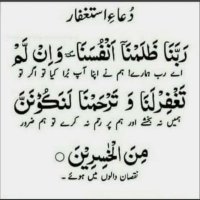 دُعاءِ استغفار
رَبَّنَا ظَلَمْنَا اَنْفُسَنَا وَاِنْ لَّمْ
اے رب ہمارے! ہم نے اپنا آپ بُرا کیا تو اگر تو
تَغْفِرْلَنَا وَ تَرْحَمْنَا لَنَكُوْنَنَّ
ہمیں نہ بخشے اور ہم پر رحم نہ کرے تو ہم ضرور
مِنَ الْخٰسِرِيْنَ ○
نقصان والوں میں ہوئے ۔